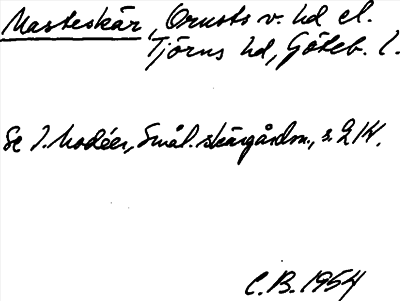 Masteskär, Orusts v. hd el.
Tjörns hd, Göteb. l.
Se I. Modéer, Smål. skärgårdsn., s. 214.
C.B. 1954